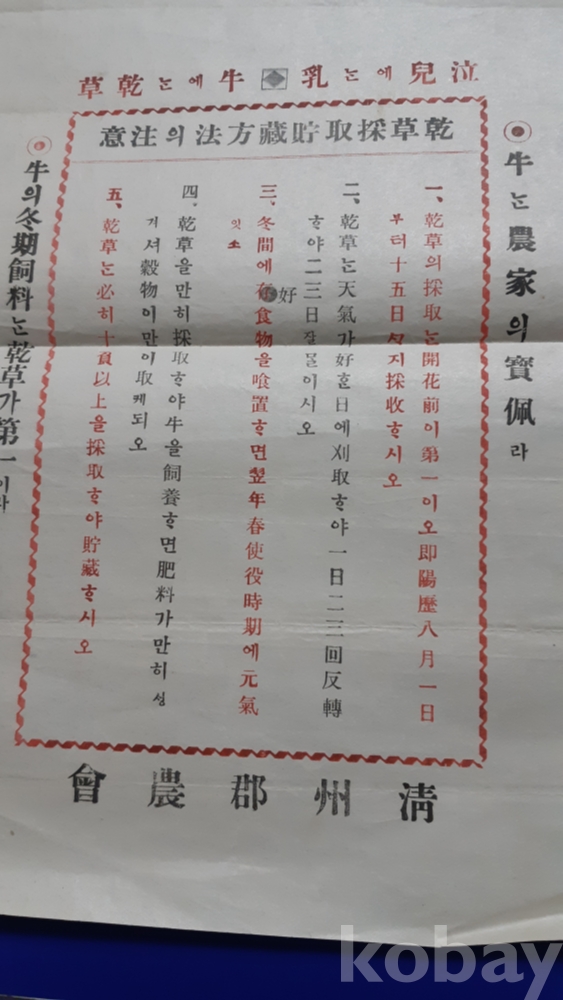 泣兒에ᄂᆞᆫ乳 牛에ᄂᆞᆫ乾草
◉牛ᄂᆞᆫ農家의寶佩라
乾草採取貯藏方法의注意
一、乾草의採取ᄂᆞᆫ開花前이第一이오即陽歷八月一日
부터十五日ᄭᆞ지採收ᄒᆞ시오
二、乾草ᄂᆞᆫ天氣가好ᄒᆞᆫ日에刈取ᄒᆞ야一日二三回反轉
ᄒᆞ야二三日잘말이시오
三、冬間에好食物을喰置ᄒᆞ면翌年春使役時期에元氣
잇소
四、乾草을만히採取ᄒᆞ야牛을飼養ᄒᆞ면肥料가만히성
겨셔穀物이만이取케되오
五、乾草ᄂᆞᆫ必히十貫以上을採取ᄒᆞ야貯藏ᄒᆞ시오
◉牛의冬期飼料ᄂᆞᆫ乾草가第一이라
淸州郡農會
kobay